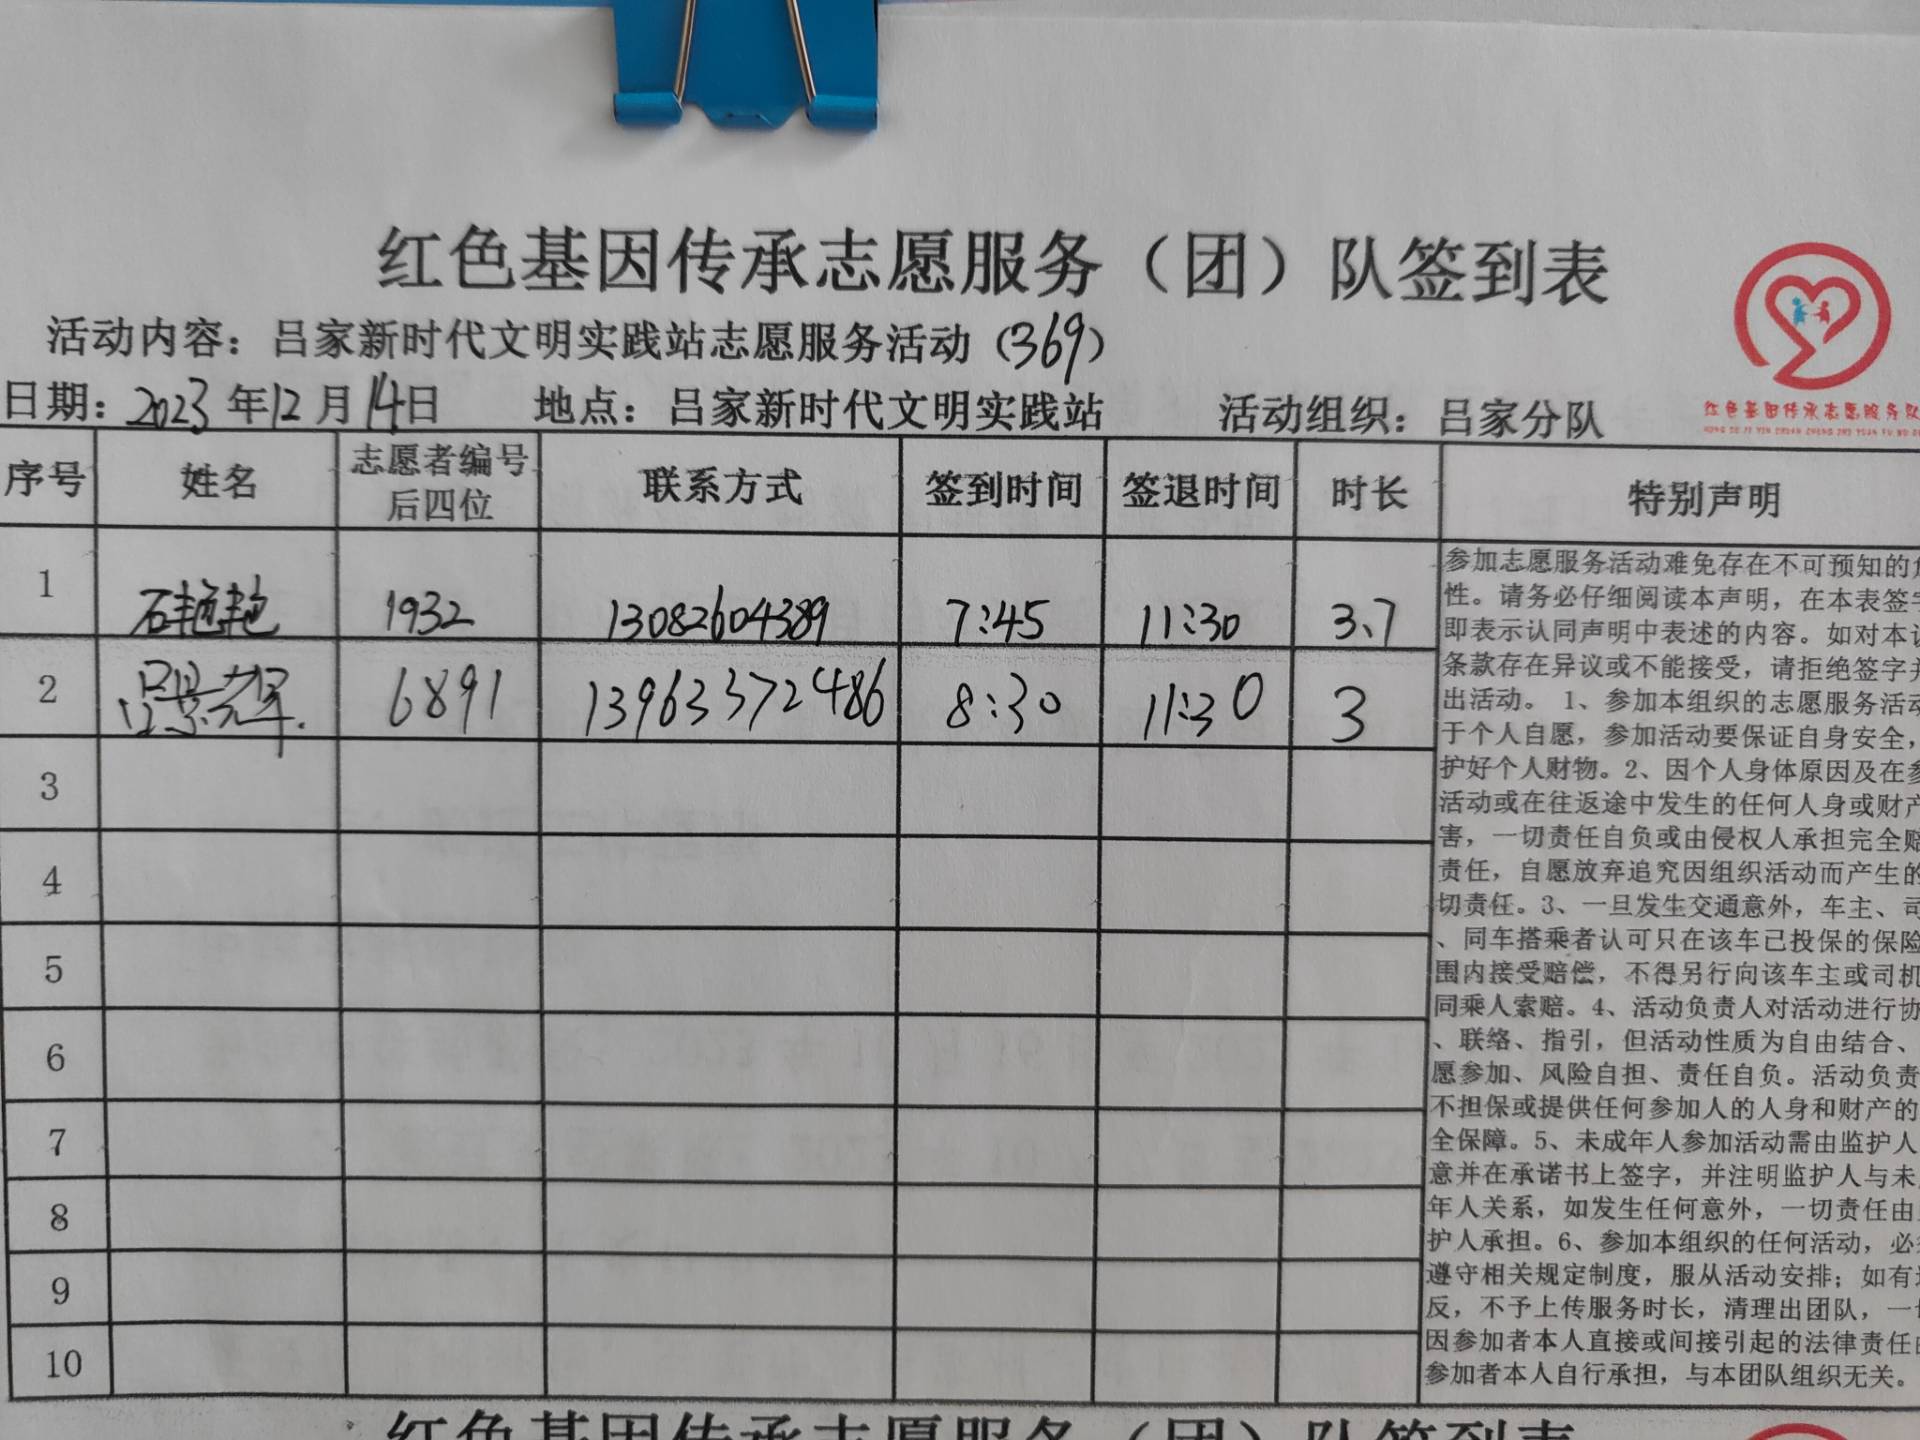 红色基因传承志愿服务（团）队签到表
活动内容：吕家新时代文明实践站志愿服务活动（369）
日期：2023年12月14日 地点：吕家新时代文明实践站 活动组织：吕家分队
红色基因传承志愿服务队
序号 姓名 志愿者编号后四位 联系方式 签到时间 签退时间 时长 特别声明
1 石艳艳 1932 13082604389 7:45 11:30 3.7
2 吕景光辉 6891 13963372486 8:30 11:30 3
3
4
5
6
7
8
9
10
参加志愿服务活动难免存在不可预知的
性。请务必仔细阅读本声明，在本表签字
即表示认同声明中表述的内容。如对本
条款存在异议或不能接受，请拒绝签字并
出活动。1、参加本组织的志愿服务活动
于个人自愿，参加活动要保证自身安全，
护好个人财物。2、因个人身体原因及在参
活动或在往返途中发生的任何人身或财产
害，一切责任自负或由侵权人承担完全赔
责任，自愿放弃追究因组织活动而产生的
切责任。3、一旦发生交通意外，车主、司
、同车搭乘者认可只在该车已投保的保险
围内接受赔偿，不得另行向该车主或司机
同乘人索赔。4、活动负责人对活动进行协
、联络、指引，但活动性质为自由结合、
愿参加、风险自担、责任自负。活动负责
不担保或提供任何参加人的人身和财产的
全保障。5、未成年人参加活动需由监护人
意并在承诺书上签字，并注明监护人与未
年人关系，如发生任何意外，一切责任由
护人承担。6、参加本组织的任何活动，必
遵守相关规定制度，服从活动安排；如有
反，不予上传服务时长，清理出团队，一
因参加者本人直接或间接引起的法律责任
参加者本人自行承担，与本团队组织无关。
红色基因传承志愿服务（团）队签到表